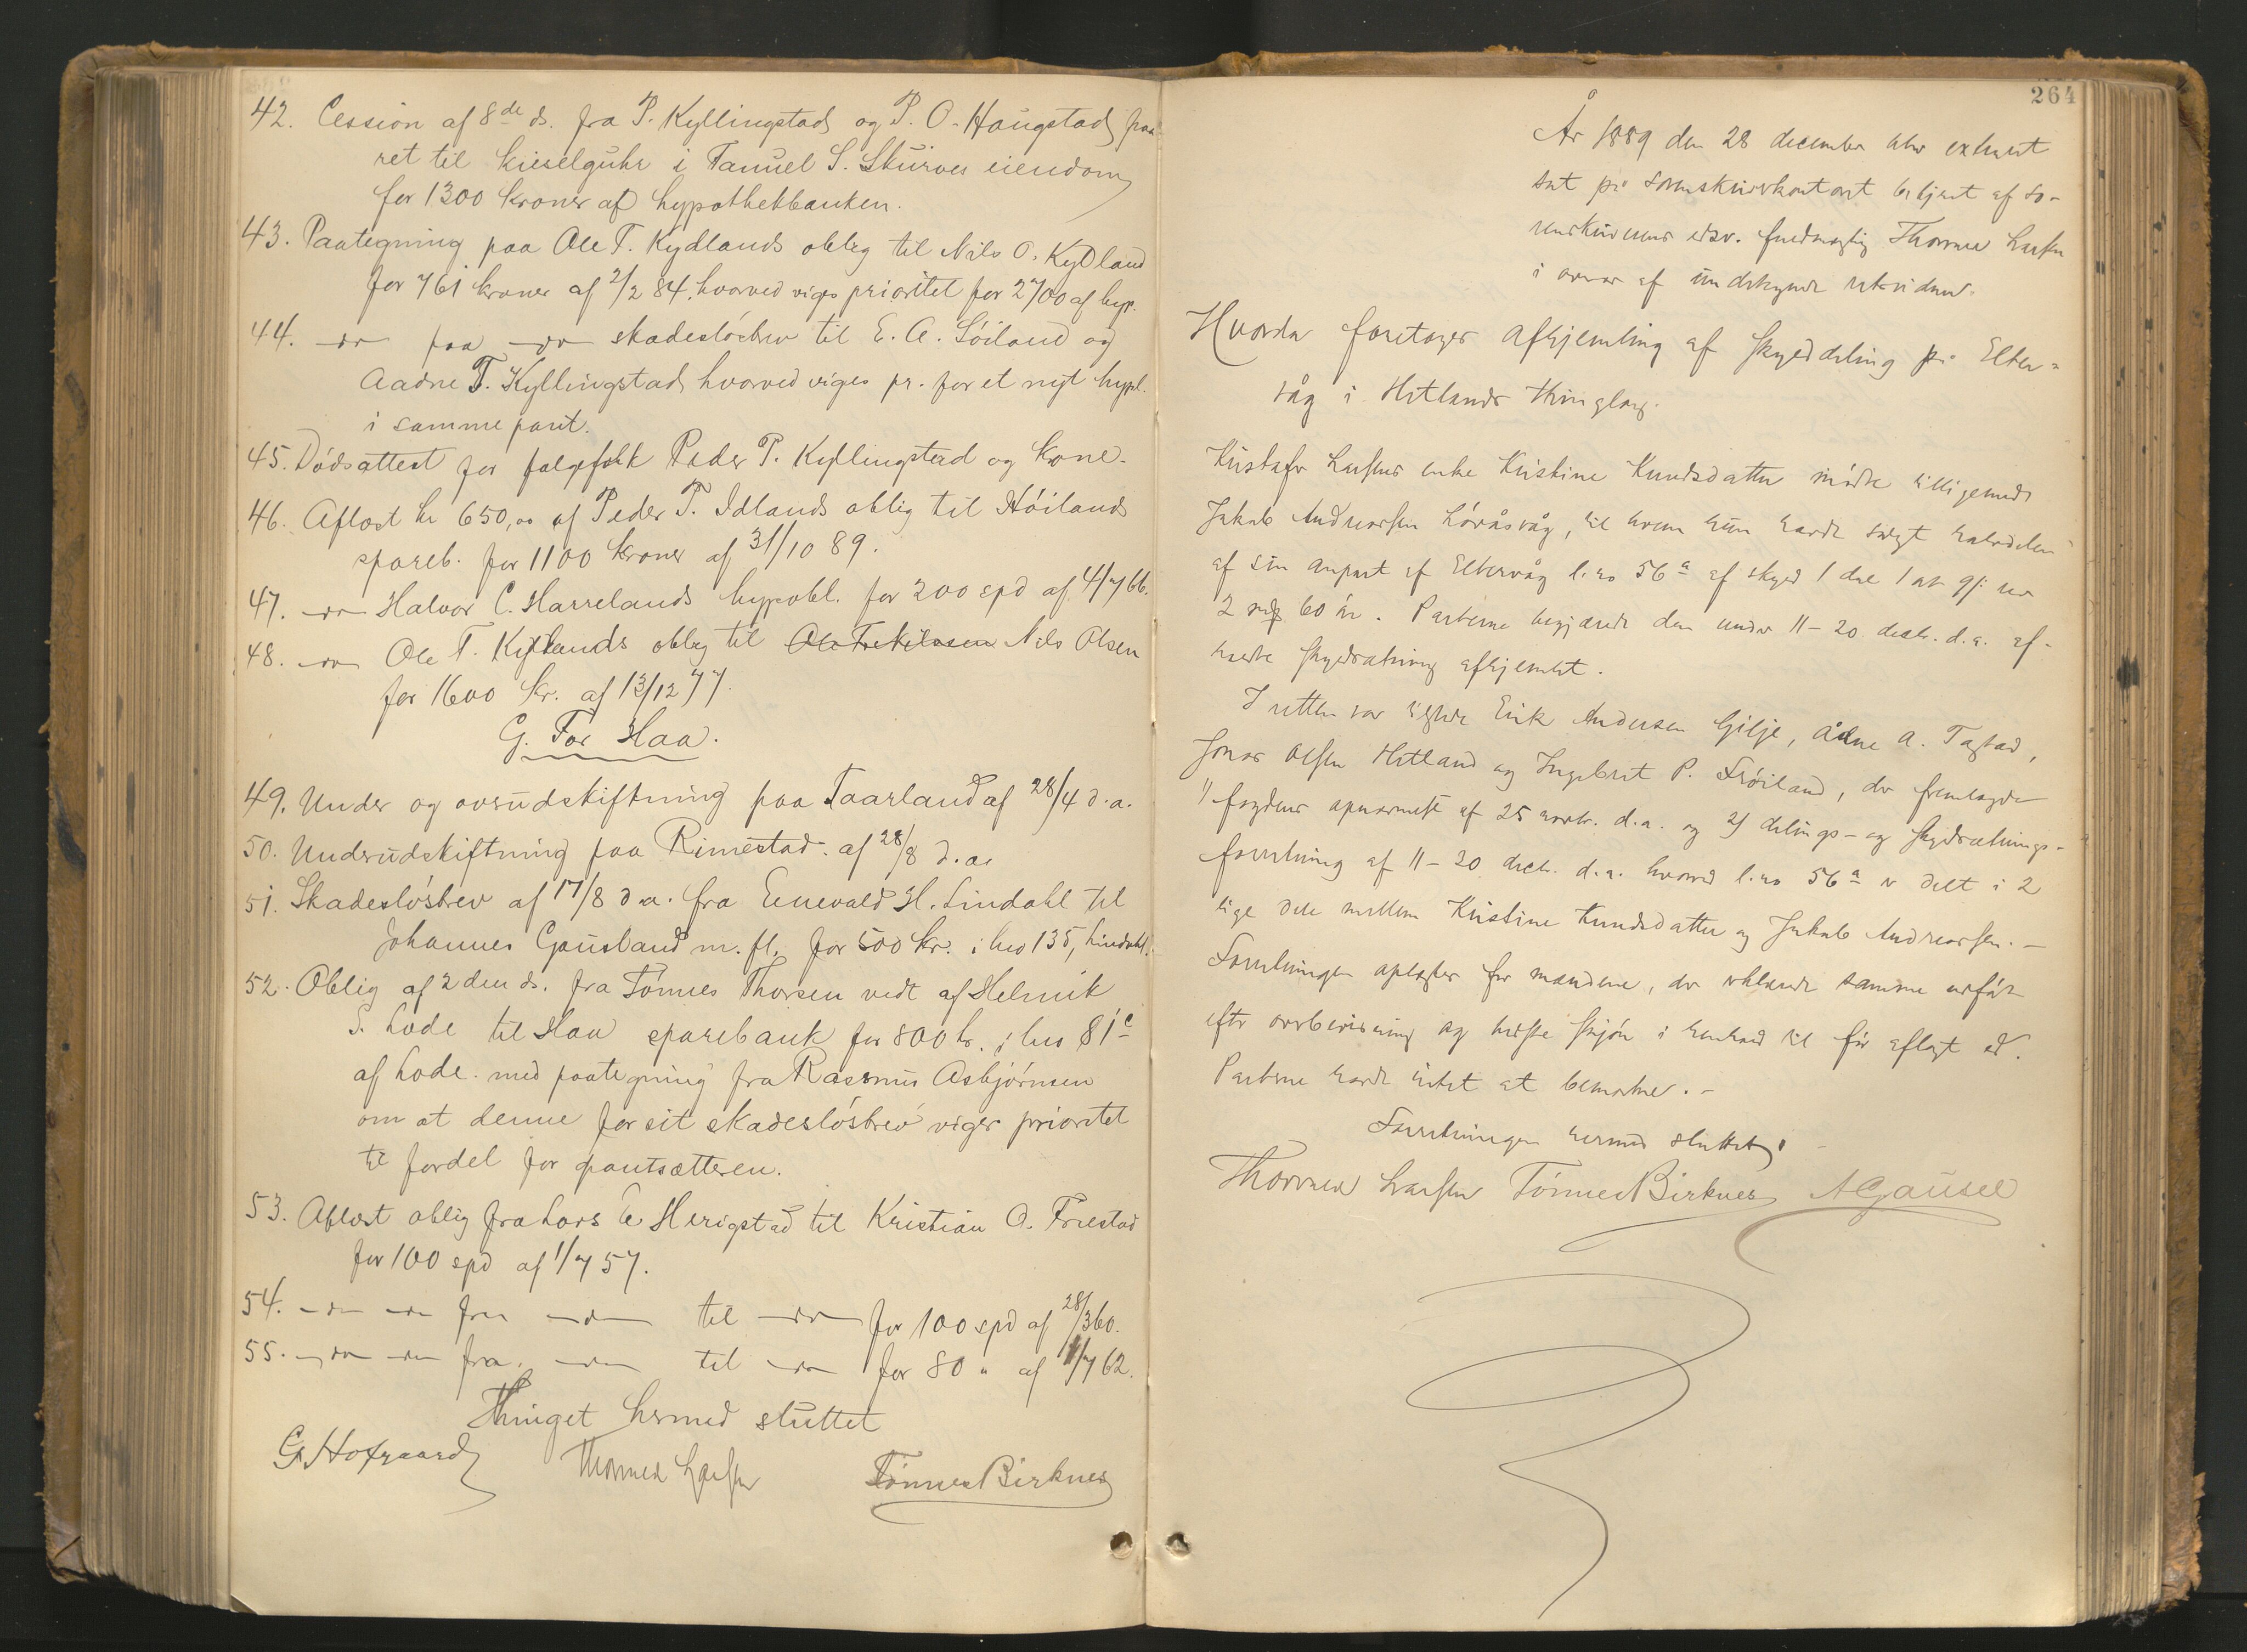 42. Cession af 8de ds. fra P. Kyllingstad og P. O. Haugstad paa
ret til kieselguhr i Tanuel S. Skurves eiendom
for 1300 kroner af hypothekbanken.
43. Paategning paa Ole T. Kydlands oblig til Nils O. Kydland
for 761 kroner af 2/2 84, hvorved viges prioritet for 2700 af hyp.
44. -do- paa -do- skadesløsbrev til E. A. Söiland og
Aadne T. Kyllingstad hvorved viges pr. for et nyt hypl.
i samme pant.
45. Dödsattest for folgefolk Peder P. Kyllingstad og kone.
46. Aflæst kr 650,00 af Peder T. Idlands oblig til Höilands
spareb. for 1100 kroner af 31/10 89.
47. -do- Halvor C. Harrelands hypobl. for 200 spd af 4/7 66.
48. -do- Ole T. Kydlands oblig til Nils Olsen
for 1600 kr. af 13/12 77.
G. For Haa.
49. Under og overudskiftning paa Taarland af 28/4 d.a.
50. Underudskiftning paa Rimestad af 28/8 d.a.
51. Skadeslösbrev af 17/8 d.a. fra Enevald H. Lindahl til
Johannes Gausland m. fl. for 500 kr. i lno 135, Lindahl.
52. Oblig af 2den ds. fra Tönnes Thorsen vedt af Helmik
S. Lode til Haa sparebank for 800 kr. i lno 81c
af Lode med paategning fra Rasmus Asbjörnsen
om at denne for sit skadeslösbrev viger prioritet
til fordel for pantsætteren.
53. Aflæst oblig fra Lars E Herigstad til Kristian O. Friestad
for 100 spd af 1/7 57.
54. -do- -do- fra -do- til -do- for 100 spd af 28/3 60.
55. -do- -do- fra -do- til -do- for 80 " af 1/7 62.
Thinget hermed sluttet
G. Hofgaard Thormod Larsen Tönnes Birknes
264
År 1889 den 28 december blev extraret
sat på sorenskriverkontoret betjent af so-
renskriverens edsv. fuldmægtig Thormod Larsen
i overvær af undertegnede retsvidner.
Hvorda foretoges afhjemling af skylddeling på Elter-
våg i Hetlands thinglag.
Kristine Knudsdatter mödte tilligemed
Jakob Andreassen Löråsvåg, til hvem hun havde solgt halvdelen
af sin anpart af Eltervåg l.no 56a af skyld 1 dal 1 ort 9 ß no
2 mk 60 öre. Parterne begjærede den under 11-20 decbr. d.a. af-
holdte skyldsætning afhjemlet.
I retten var tilstede Erik Andersen Gilje, Ådne A. Tagstad,
Jonas Olsen Hetland og Ingebret P. Fröiland, der fremlagde
1/ fogdens opnævnelse af 25 novbr. d.a. og 2/ delings- og skyldsætnings-
forretning af 11-20 decbr. d.a. hvorved l.no 56a er delt i 2
lige dele mellem Kristine Knudsdatter og Jakob Andreassen. -
Forretningen oplæstes for mændene, der erklærede samme udfört
efter overbevisning og bedste skjön i henhold til för aflagt ed.
Parterne havde intet at bemærke. -
Forretningen hermed sluttet.
Thormod Larsen Tönnes Birknes A Gausel